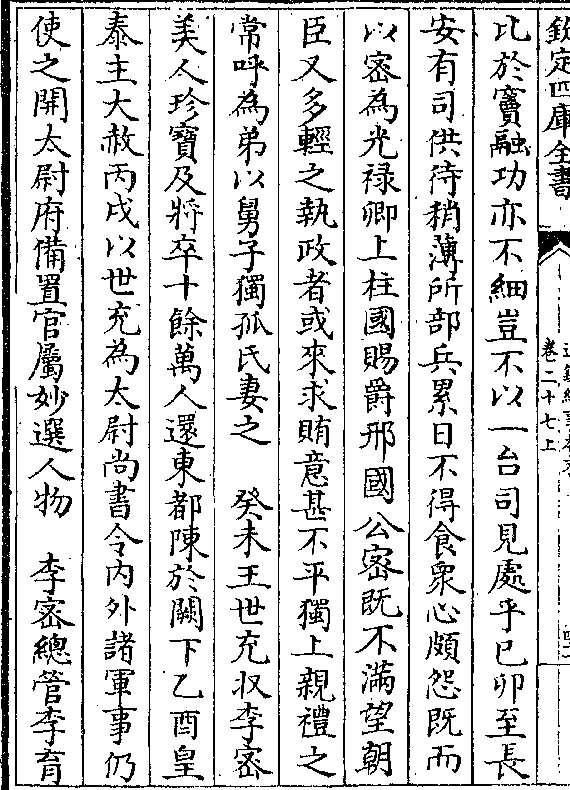 欽定四庫全書
卷二十七上
比於竇融功亦不細豈不以一台司見處乎已卯至長
安有司供待稍薄所部兵累日不得食衆心頗怨既而
以密為光禄卿上柱國賜爵邢國公密既不滿望朝
臣又多輕之執政者或來求賄意甚不平獨上親禮之
常呼為弟以舅子獨孤氏妻之　癸未王世充収李密
美人珍寶及將卒十餘萬人還東都陳於闕下乙酉皇
泰主大赦丙戌以世充為太尉尚書令内外諸軍事仍
使之開太尉府備置官屬妙選人物　李密總管李育